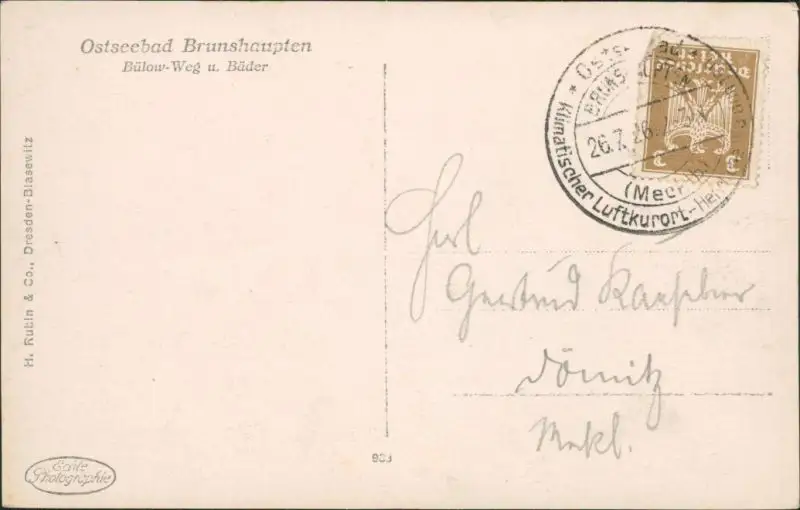 Ostseebad Brunshaupten
Bülow-Weg u. Bäder
H. Rubin & Co., Dresden-Blasewitz
Echte
Photographie
933
BRUNSHAUPTEN
26.7.26.
(Meckl)
Klimatischer Luftkurort-Hei
Frl
Gertrud
Dömitz
Meckl.